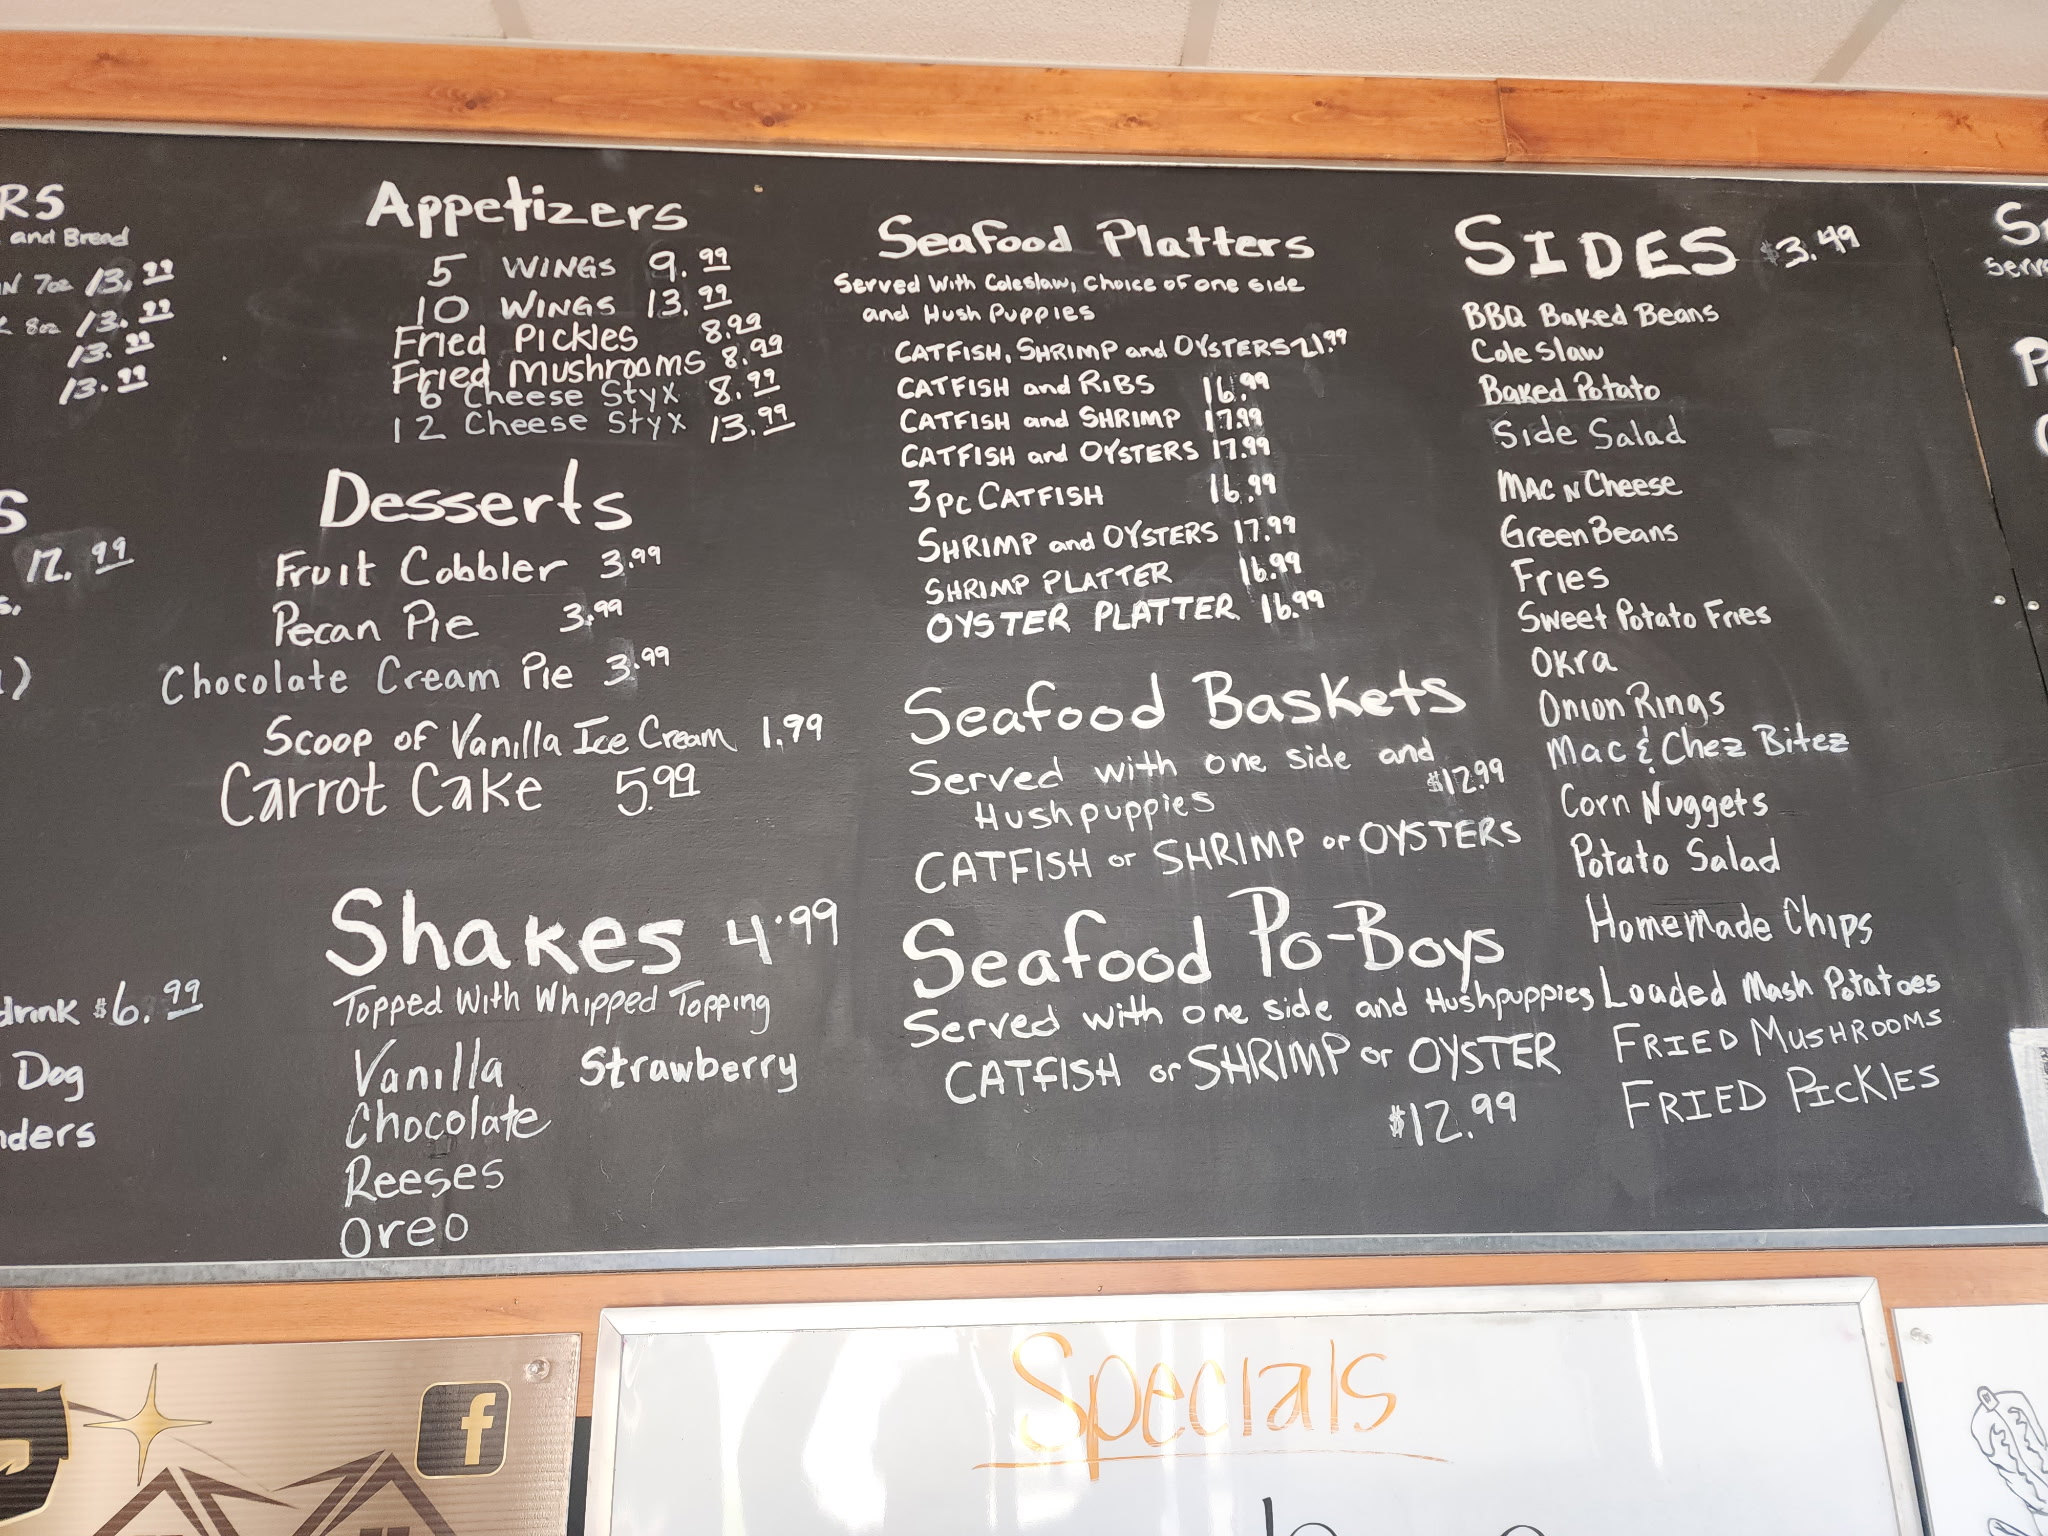 RS
and Bread
7oz 13.99
8oz 13.99
13.99
13.99
S
12.99
drink $6.99
Dog
Appetizers
5 WINGS 9.99
10 WINGS 13.99
Fried Pickles 8.99
Fried Mushrooms 8.99
6 Cheese Styx 8.99
12 Cheese Styx 13.99
Desserts
Fruit Cobbler 3.99
Pecan Pie 3.99
Chocolate Cream Pie 3.99
Scoop of Vanilla Ice Cream 1.99
Carrot Cake 5.99
Shakes 4.99
Topped With Whipped Topping
Vanilla Strawberry
Chocolate
Reeses
Oreo
Seafood Platters
Served With Coleslaw, Choice of one side
and Hush Puppies
CATFISH, SHRIMP and OYSTERS 21.99
CATFISH and RIBS 16.99
CATFISH and SHRIMP 17.99
CATFISH and OYSTERS 17.99
3pc CATFISH 16.99
SHRIMP and OYSTERS 17.99
SHRIMP PLATTER 16.99
OYSTER PLATTER 16.99
Seafood Baskets
Served with one side and
Hushpuppies $12.99
CATFISH or SHRIMP or OYSTERS
Seafood Po-Boys
Served with one side and Hushpuppies
CATFISH or SHRIMP or OYSTER
$12.99
SIDES $3.49
BBQ Baked Beans
Cole Slaw
Baked Potato
Side Salad
MAC N Cheese
Green Beans
Fries
Sweet Potato Fries
Okra
Onion Rings
Mac & Chez Bitez
Corn Nuggets
Potato Salad
Homemade Chips
Loaded Mash Potatoes
FRIED MUSHROOMS
FRIED PICKLES
Specials